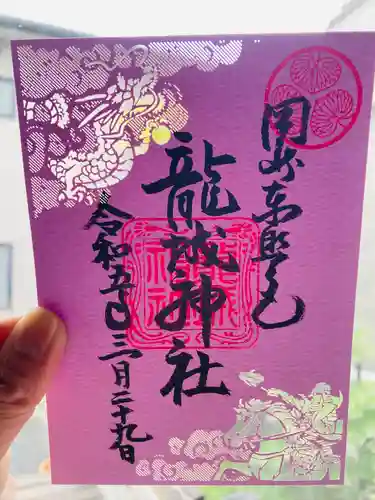 岡崎東照宮
龍城神社
令和五年三月二十九日